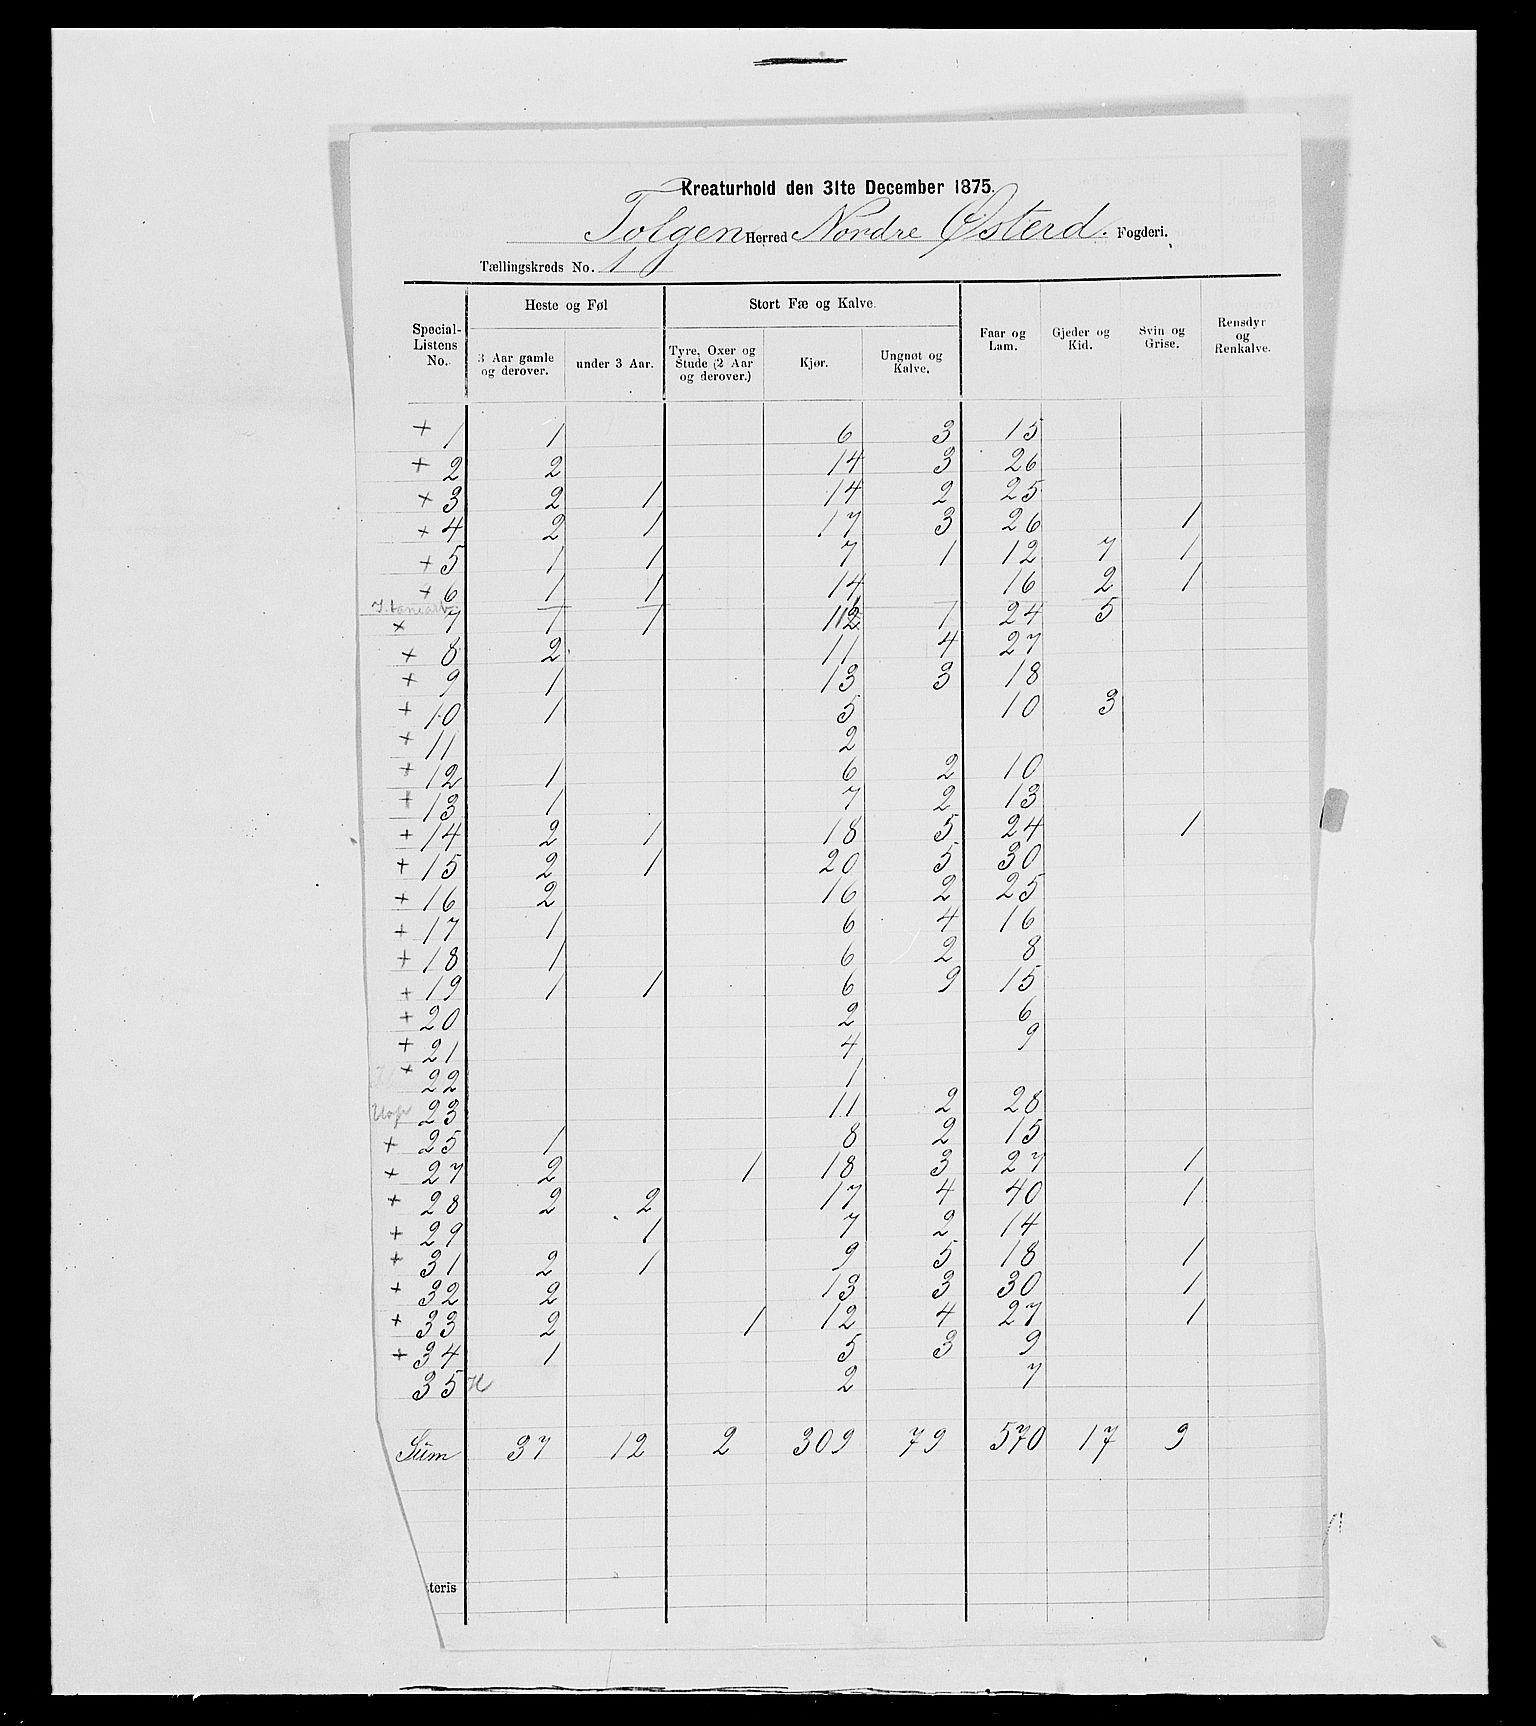 Kreaturhold den 31te December 1875.
Tolgen Herred Nordre Østerd. Fogderi.
Tællingskreds No. 1
Special-Listens No. | Heste og Føl | Stort Fæ og Kalve. | Faar og Lam. | Gjeder og Kid. | Svin og Grise. | Rensdyr og Renkalve.
3 Aar gamle og derover. | under 3 Aar. | Tyre, Oxer og Stude (2 Aar og derover.) | Kjør. | Ungnøt og Kalve.
+ 1 | 1 | | | 6 | 3 | 15 | | |
+ 2 | 2 | | | 14 | 3 | 26 | | |
+ 3 | 2 | 1 | | 14 | 2 | 25 | | |
+ 4 | 2 | 1 | | 17 | 3 | 26 | | 1 |
+ 5 | 1 | 1 | | 7 | 1 | 12 | 7 | 1 |
+ 6 | 1 | 1 | | 14 | | 16 | 2 | 1 |
× 7 | 1 | 1 | | 12 | 1 | 24 | 5 | |
+ 8 | 2 | | | 11 | 4 | 27 | | |
+ 9 | 1 | | | 13 | 3 | 18 | | |
+ 10 | 1 | | | 5 | | 10 | 3 | |
+ 11 | | | | 2 | | | | |
+ 12 | 1 | | | 6 | 2 | 10 | | |
+ 13 | 1 | | | 7 | 2 | 13 | | |
+ 14 | 2 | 1 | | 18 | 5 | 24 | | 1 |
+ 15 | 2 | 1 | | 20 | 5 | 30 | | |
+ 16 | 2 | | | 16 | 2 | 25 | | |
+ 17 | 1 | | | 6 | 4 | 16 | | |
+ 18 | 1 | | | 6 | 2 | 8 | | |
+ 19 | 1 | 1 | | 6 | 9 | 15 | | |
+ 20 | | | | 2 | | 6 | | |
+ 21 | | | | 4 | | 9 | | |
+ 22 | | | | 1 | | | | |
23 | | | | 11 | 2 | 28 | | |
+ 25 | 1 | | | 8 | 2 | 15 | | |
+ 27 | 2 | | 1 | 18 | 3 | 27 | | 1 |
+ 28 | 2 | 2 | | 17 | 4 | 40 | | 1 |
+ 29 | | 1 | | 7 | 2 | 14 | | |
+ 31 | 2 | 1 | | 9 | 5 | 18 | | 1 |
+ 32 | 2 | | | 13 | 3 | 30 | | 1 |
+ 33 | 2 | | 1 | 12 | 4 | 27 | | 1 |
+ 34 | 1 | | | 5 | 3 | 9 | | |
35 | | | | 2 | | 7 | | |
Sum | 37 | 12 | 2 | 309 | 79 | 570 | 17 | 9 |
teris